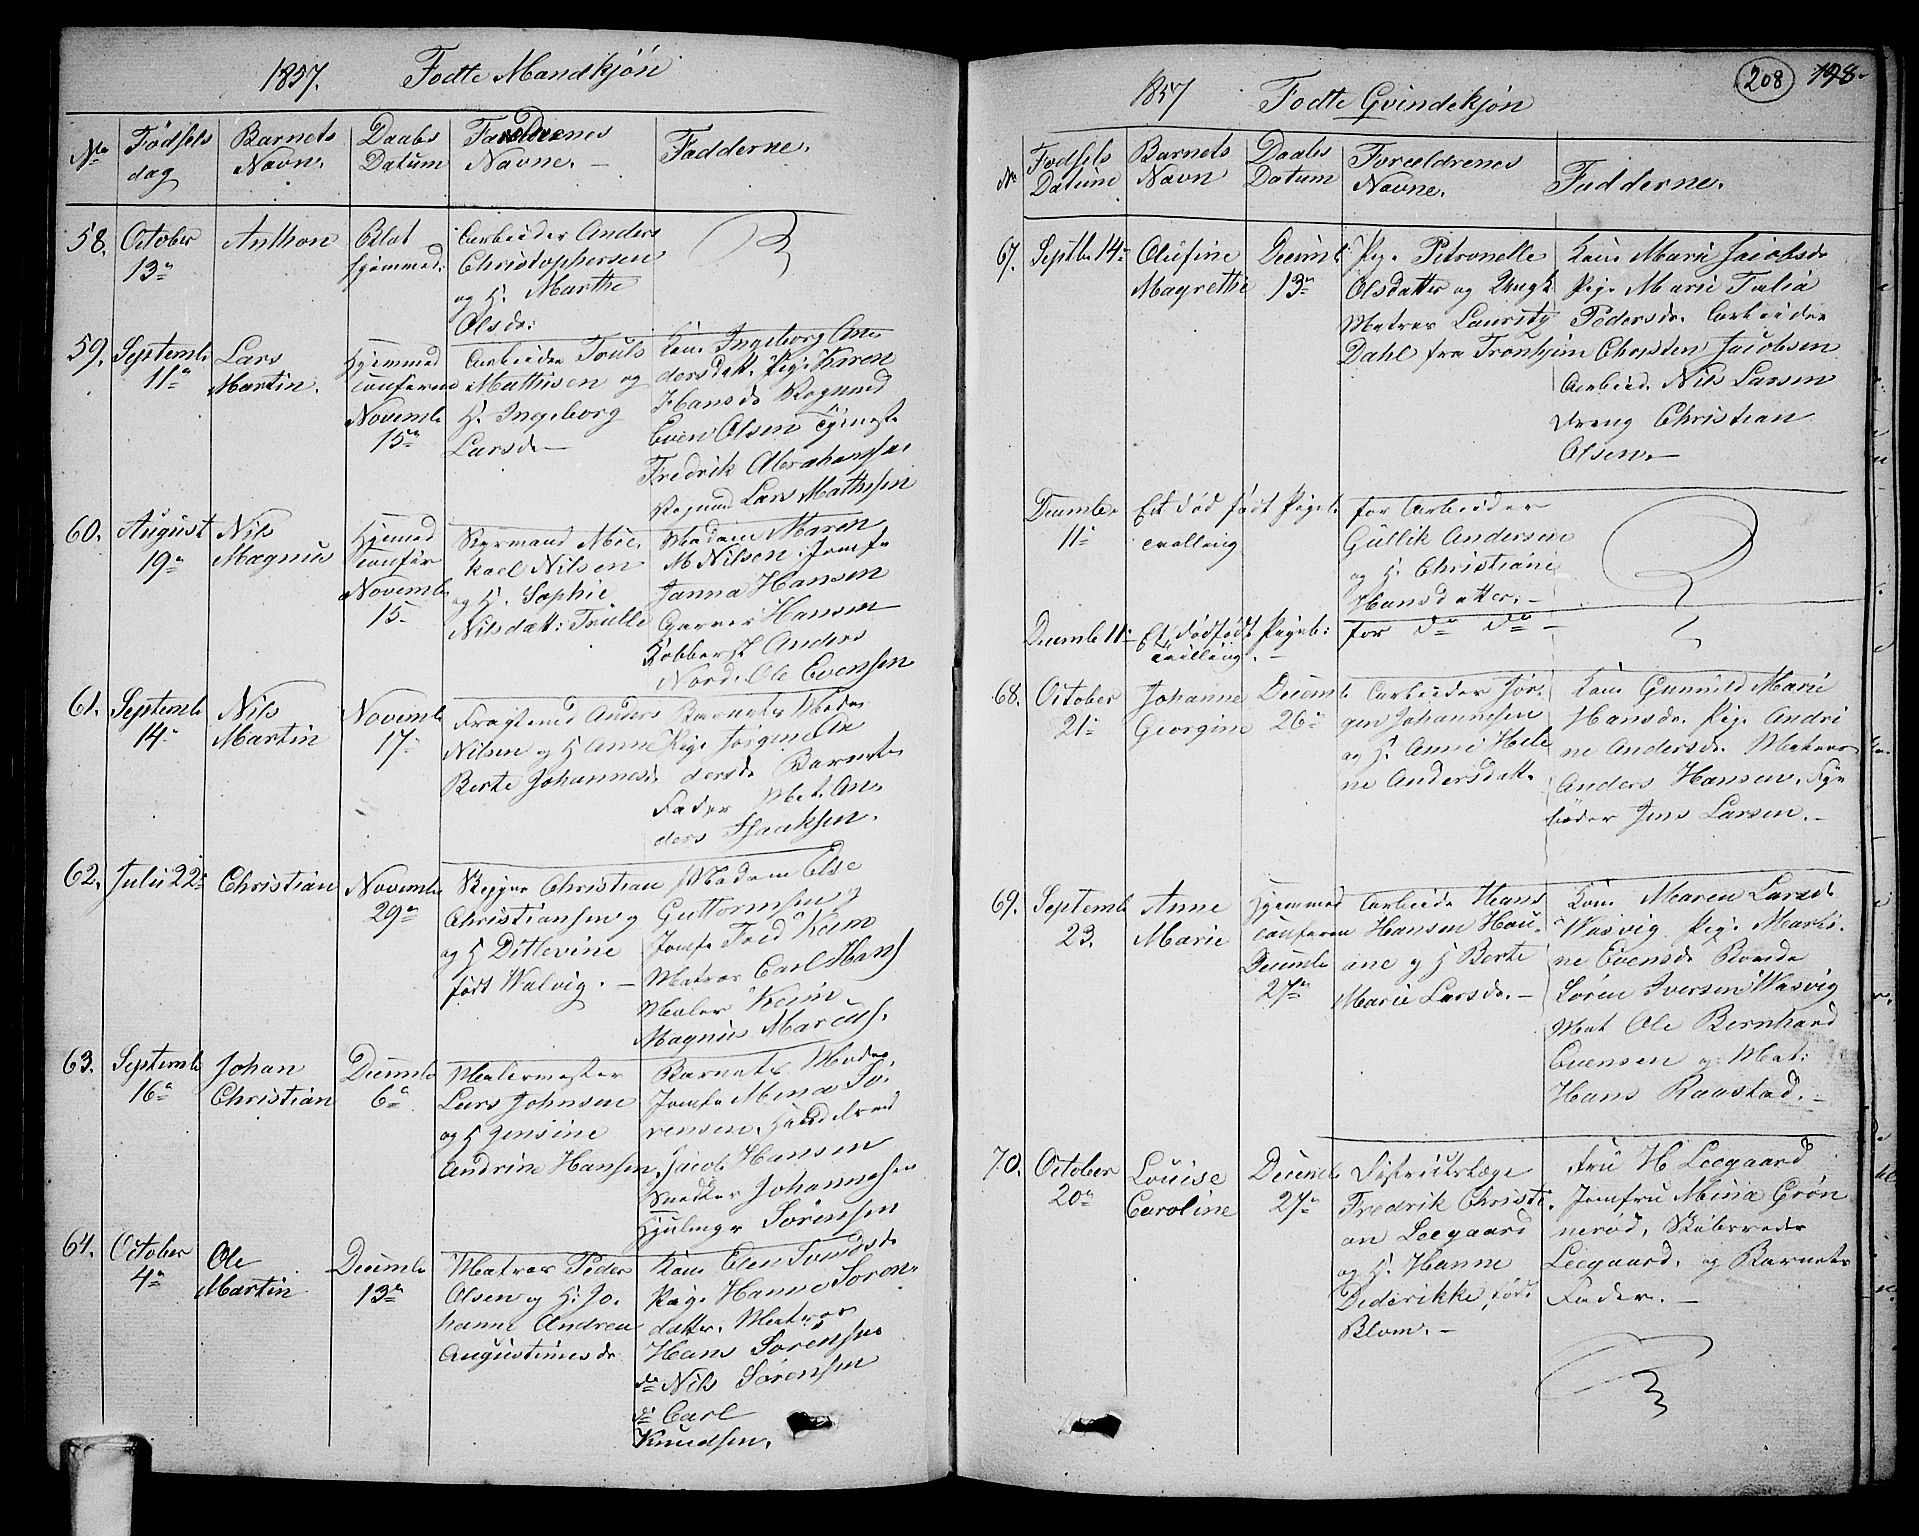 1857. Fødte Mandkjøn
No
Fødsels dag
Barnets Navn.
Daabs Datum
Forældrenes Navne.
Fadderne.
58. October 13de
Anthon
Blot hjemmed:
Arbeider Anders
Christophersen
og H. Marthe
Olsdr:
59. Septembr 11te
Lars
Martin.
Hjemmed
confere
Novembr
15de
Arbeider Truls
Mathisen og
H. Ingeborg
Larsdr
Kone Ingeborg An-
dersdatt. Pige Karen
Hansdr
Even Olsen
Fredrik Abrahamsen
Lars Mathisen
60. August 19de
Nils
Magnus
Hjemmed
confer
Novembr
15.
Styrmand Mic-
kael Nilsen
og H. Sophie
Nilsdatt: Trulle
Madam Maren
M Nilsen. Jomfr
Janna Hansen
Garver Hansen
Kobbersl Anders
Nord. Ole Evensen
61. Septembr 14de
Nils
Martin
Novembr
17de
Fragtemd Anders
Nilsen og H Anne
Berte Johannesd
Barnets Moder
Pige Jørgine An
dersdr Barnets
Fader Mat. An-
ders Isaaksen.
62. Julii 22de
Christian
Novembr
29de
Christian
Christiansen
og H Ditlevine
født Walvig. —
Madam Else
Guttormsen
Jomfr Fred Keim
Matros Carl Hans
Maler Keim
Magnus Marcus.
63. Septembr 16de
Johan
Christian
Decembr
6te
Malermester
Lars Johnsen
og H Jensine
Andrine Hansen
Barnets Moder,
Jomfr Mina Sø-
rensen. Handelsmd
Jacob Hansen
Snedker Johannesen
Hjulmgr Sørensen
64. October 4de
Ole
Martin
Decembr
13de
Matros Peder
Olsen og H. Jo-
hanne Andrea
Augustinusdr
Kone Elen Svendsd
Pige Hanne Søren-
datter. Matros
Hans Sørensen
do Nils Sørensen
do Carl
Knudsen.
208 198.
1857 Fødte Qvindekjøn
No
Fødsels Datum
Barnets Navn
Daabs Datum
Forældrenes Navne.
Fadderne.
67. Septbr 14de
Olufine
Magrethe
Decembr
13de
Pige Petronelle
Olsdatter og Ungk
Matros Lauritz
Dahl fra Tronhjem
Kone Marie Jacobsdr
Pige Marie Talia
Pedersdr. Arbeider
Christen Jacobsen
Arbeid. Nils Larsen
Dreng Christian
Olsen. —
Decembr 11te
Et død født Pigeb.
tvilling
for Arbeider
Gullik Andersen
og H. Christiane
Hansdatter. —
Decembr 11te
Et dødfødt Pigeb:
tvilling. —
for do do —
68. October 21de
Johanne
Georgine
Decembr
26de
Arbeider Jør-
gen Johannesen
og H. Anne Hele
ne Andersdatt.
Kone Gunnild Marie
Hansdr. Pige Andri
ne Andersdr. Matros
Anders Hansen. Fyr
bøder Jens Larsen. —
69. Septembr 23.
Anne
Marie
Hjemmed
confere
Decembr
27de
Arbeider Hans
Hansen Hou-
ane og H Berte
Marie Larsdr. —
Kone Maren Larsdr
Wasvig Pige Marti-
ne Evensdr Bonde
Søren Iversen Wasvig
Mat Ole Bernhard
Evensen og Mat:
Hans Raastad. —
70. October 20de
Louise
Caroline
Decembr
27de
Districtslæge
Fredrik Christi
an Leegaard
og H. Hanne
Diderikke, fød.
Blom. —
Fru H Leegaard
Jomfru Mina Grøn
nerød, Skibsreder
Leegaard. og Barnets
Fader. —